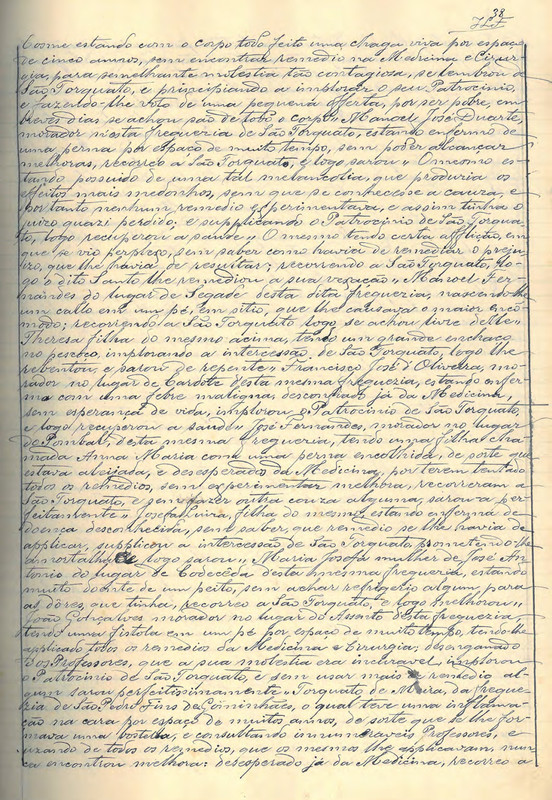 38
Cosme estando com o corpo todo feito uma chaga viva por espaço
de cinco annos, sem encontrar remedio na Medicina e Cirur-
gia, para semelhante molestia tão contagiosa, se lembrou de
São Torquato, e principiando a implorar o seu Patrocinio,
e fazendo-lhe voto de uma pequena offerta, por ser pobre, em
breves dias se achou são de todo o corpo" Manoel José Duarte,
morador n'esta freguezia de São Torquato, estando enfermo de
uma perna por espaço de muito tempo, sem poder alcançar
melhoras, recorreo a São Torquato, e logo sarou" O mesmo es-
tando possuido de uma tal melancolia, que produzia os
effeitos mais medonhos, sem que se conhecesse a cauza, e
por tanto nenhum remedio experimentava, e assim tinha o
juizo quazi perdido; e supplicando o Patrocinio de São Torqua-
to, logo recuperou a saude" O mesmo tendo certa afflição, em
que se vio perplexo, sem saber como havia de remediar o preju-
izo, que lhe havia de resultar; recorrendo a São Torquato, lo-
go o dito Santo lhe remediou a sua vexação" Manoel Fer-
nandes do lugar de Segade desta dita freguezia, nascendo-lhe
um callo em um pé, em sitio, que lhe causava o maior encom-
modo; recorrendo a São Torquato logo se achou livre delle"
Theresa filha do mesmo acima, tendo um grande enchaço
no pescoço, implorando a intercessão de São Torquato, logo lhe
rebentou, e sarou de repente" Francisco José d'Oliveira, mo-
rador no lugar de Cardote desta mesma freguezia, estando enfer-
mo com uma febre maligna, desconfiado já da Medicina,
sem esperança de vida, implorou o Patrocinio de São Torquato,
e logo recuperou a saude" José Fernandes, morador no lugar
de Pombal, desta mesma freguezia, tendo uma filha cha-
mada Anna Maria com uma perna encolhida, de sorte que
estava aleijada, e desesperados da Medicina, por terem tentado
todos os remedios, sem experimentar melhora, recorreram a
São Torquato, e sem fazer outra couza alguma, sarou a per-
feitamente" Josefa Luiza, filha do mesmo, estando enferma de
doença desconhecida, sem saber, que remedio se lhe havia de
applicar, supplicou a intercessão de São Torquato, promettendo-lhe
a mortalha e logo sarou" Maria Josefa mulher de José An-
tonio do lugar de Codeceda desta mesma freguezia, estando
muito doente de um peito, sem achar refrigerio algum para
as dôres, que tinha, recorreo a São Torquato, e logo melhorou"
João Gonçalves morador no lugar do Assento desta freguezia
tendo uma fistola em um pé por espaço de muito tempo, tendo-lhe
applicado todos os remedios da Medicina e Cirurgia; desenganado
dos Professores, que a sua molestia era incuravel, implorou
o Patrocinio de São Torquato, e sem usar mais remedio al-
gum sarou perfeitissimamente" Torquato de da fregue-
zia de São Pedro Fins de Gominhães, o qual teve uma inflama-
ção na cara por espaço de muitos annos, de sorte que se lhe for-
mava uma bostella, e consultando innumeraveis Professores, e
uzando de todos os remedios, que os mesmos lhe applicavam, nun-
ca encontrou melhora: desesperado já da Medicina, recorreo a